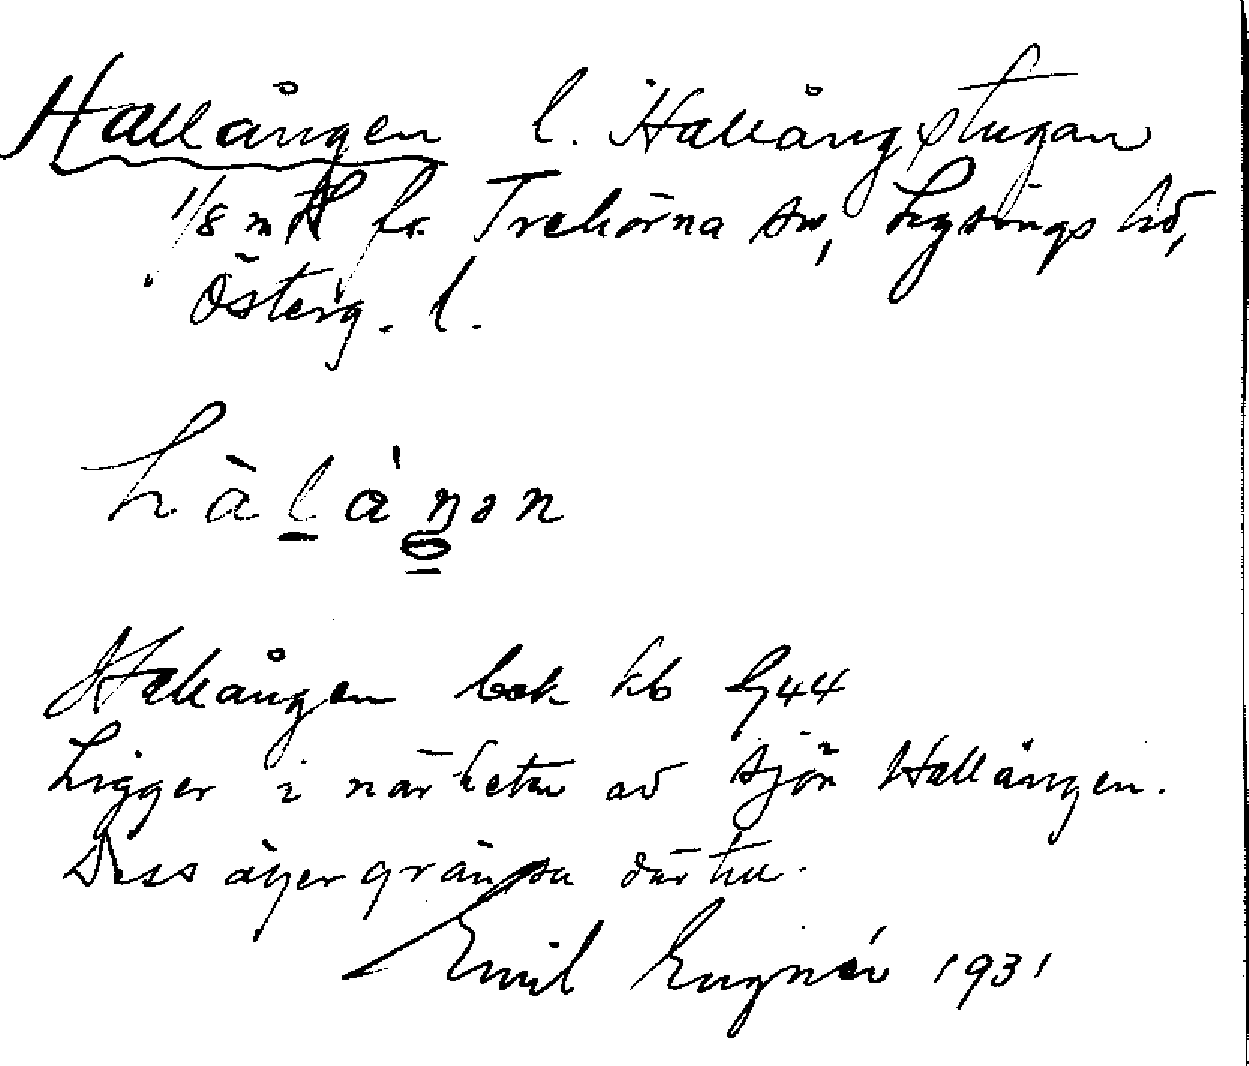 Hallången l. Hallångstugan
1/8 mtl fr. Trehörna sn, Lysings hd,
Österg. l.
hàláŋən
Hallången bok kb G44
Ligger i närheten av sjön Hallången.
Dess äger gränsa där till.
Emil Engnér 1931